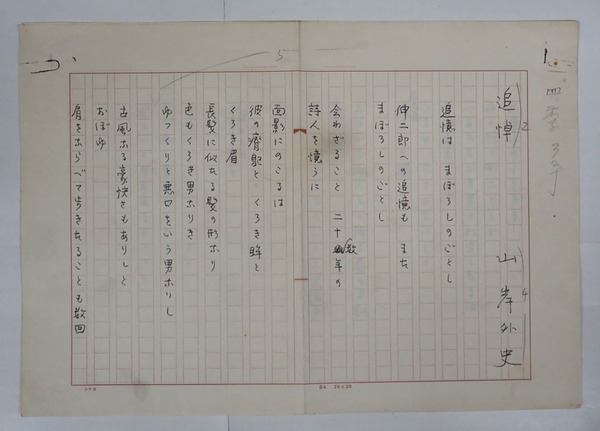 追悼
山岸外史
追憶は まぼろしのごとし
伸二郎への追憶も また
まぼろしのごとし
会わざること 二十数年の
詩人を憶うに
面影にのこるは
彼の痩躯と くろき眸と
くろき眉
長髪に似たる髪の形なり
色もくろき男なりき
ゆっくりと悪口をいう男なりし
古風なる豪快さもありしと
おぼゆ
肩をならべて歩きたることも数回
5
2
4
B4 20×20